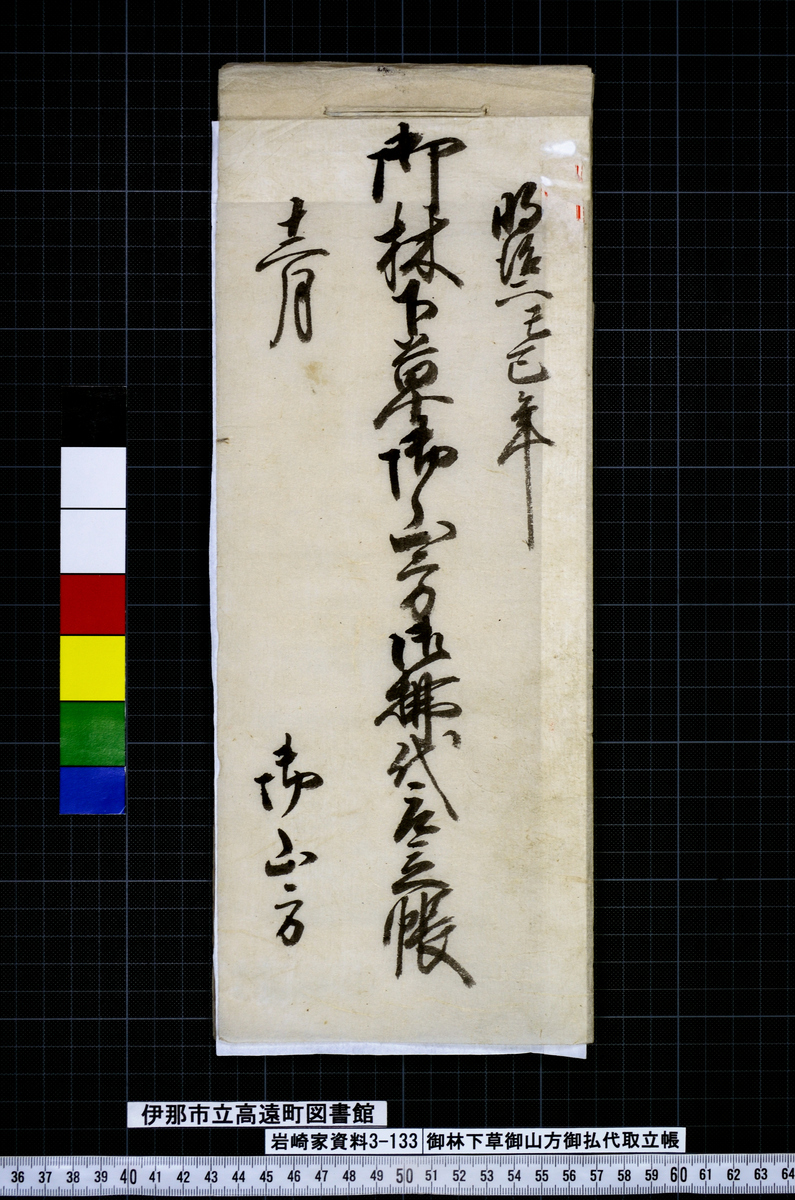 明治二己巳年
御林下草御山方御拂代取立帳
十二月
御山方
伊那市立高遠町図書館
岩崎家資料3-133 御林下草御山方御払代取立帳
36 37 38 39 40 41 42 43 44 45 46 47 48 49 50 51 52 53 54 55 56 57 58 59 60 61 62 63 64